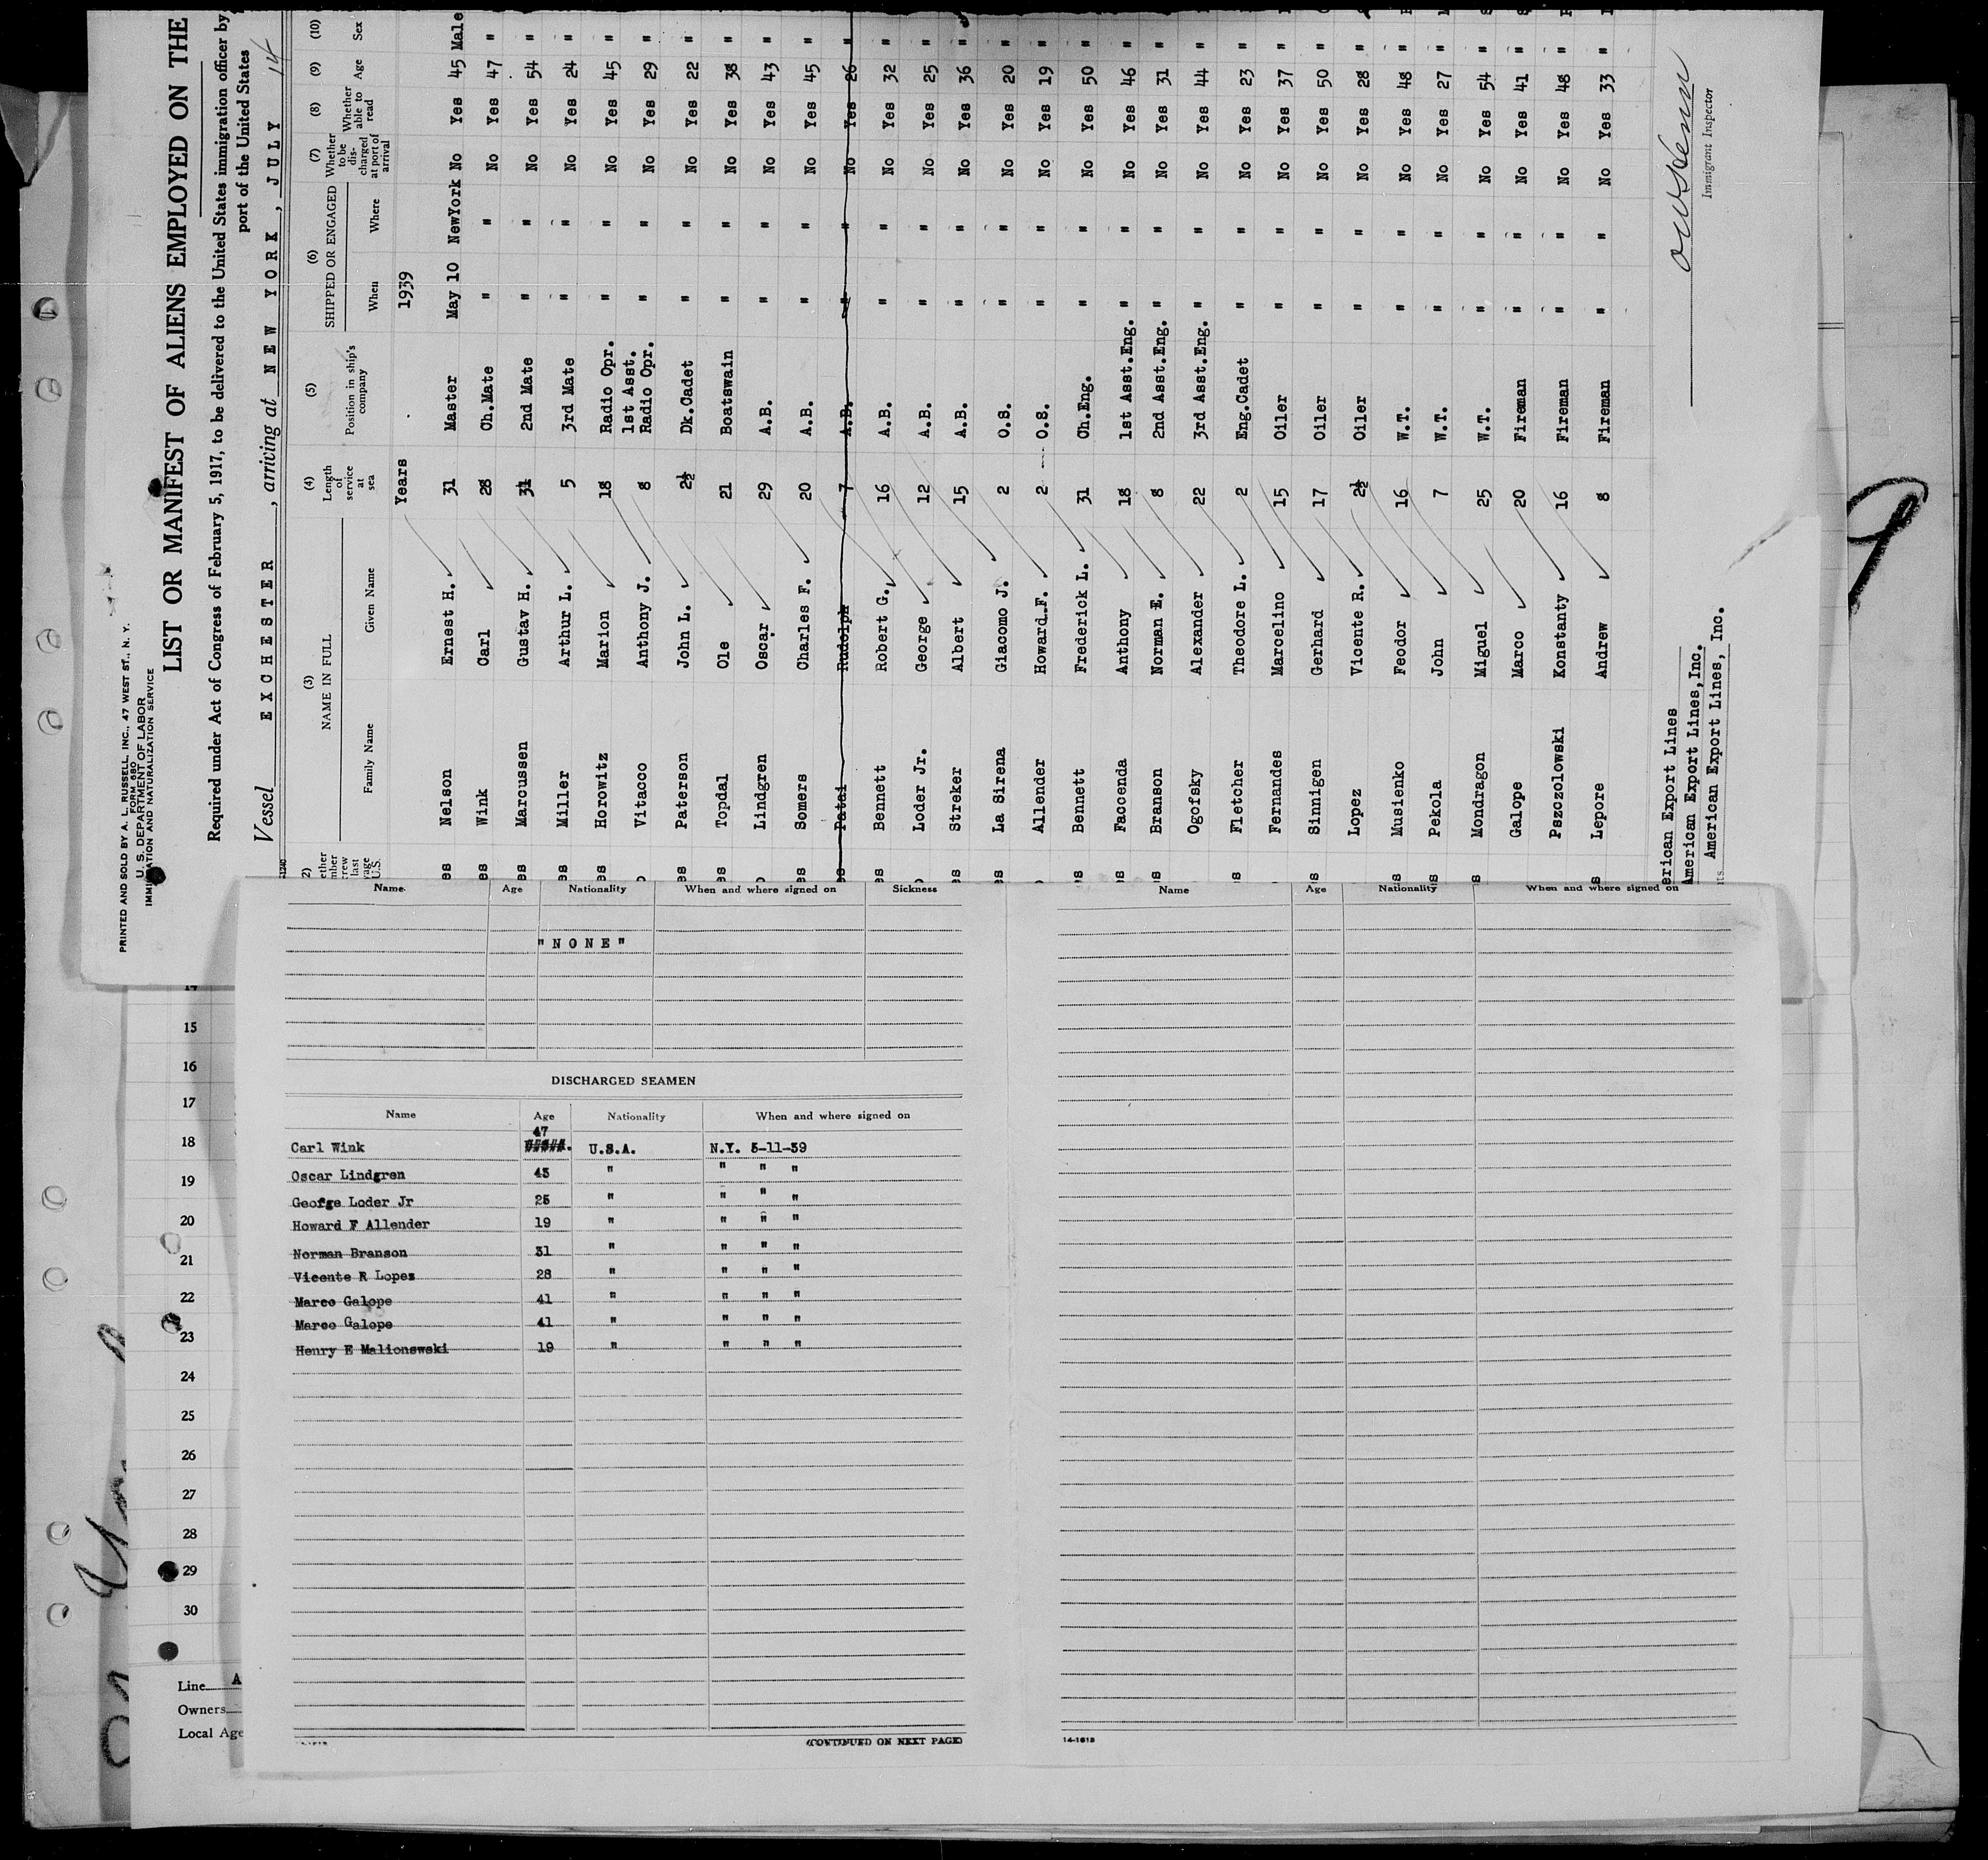 PRINTED AND SOLD BY A. L. RUSSELL, INC., 47 WEST ST., N. Y.
FORM 680
U. S. DEPARTMENT OF LABOR
IMMIGRATION AND NATURALIZATION SERVICE
LIST OR MANIFEST OF ALIENS EMPLOYED ON THE
Required under Act of Congress of February 5, 1917, to be delivered to the United States immigration officer by
port of the United States
Vessel EXCHESTER, arriving at NEW YORK, JULY 14
(3) NAME IN FULL Family Name Given Name (4) Length of service at sea (5) Position in ship's company (6) SHIPPED OR ENGAGED When Where (7) Whether to be discharged at port of arrival (8) Whether able to read (9) Age (10) Sex
Years 1939
es Nelson Ernest H. 31 Master May 10 NewYork No Yes 45 Male
es Wink Carl 28 Ch.Mate " " No Yes 47 "
es Marcussen Gustav H. 31 2nd Mate " " No Yes 54 "
es Miller Arthur L. 5 3rd Mate " " No Yes 24 "
es Horowitz Marion 18 Radio Opr. " " No Yes 45 "
o Vitacco Anthony J. 8 1st Asst. Radio Opr. " " No Yes 29 "
es Paterson John L. 2½ Dk.Cadet " " No Yes 22 "
es Topdal Ole 21 Boatswain " " No Yes 38 "
es Lindgren Oscar 29 A.B. " " No Yes 43 "
es Somers Charles F. 20 A.B. " " No Yes 45 "
es Patai Rudolph 7 A.B. " " No Yes 26 "
es Bennett Robert G. 16 A.B. " " No Yes 32 "
es Loder Jr. George 12 A.B. " " No Yes 25 "
es Streker Albert 15 A.B. " " No Yes 36 "
es La Sirena Giacomo J. 2 O.S. " " No Yes 20 "
o Allender Howard.F. 2 O.S. " " No Yes 19 "
es Bennett Frederick L. 31 Ch.Eng. " " No Yes 50 "
s Faccenda Anthony 18 1st Asst.Eng. " " No Yes 46 "
es Branson Norman E. 8 2nd Asst.Eng. " " No Yes 31 "
o Ogofsky Alexander 22 3rd Asst.Eng. " " No Yes 44 "
s Fletcher Theodore L. 2 Eng.Cadet " " No Yes 23 "
Fernandes Marcelino 15 Oiler " " No Yes 37 "
s Sinnigen Gerhard 17 Oiler " " No Yes 50 "
Lopez Vicente R. 2½ Oiler " " No Yes 28 "
s Musienko Feodor 16 W.T. " " No Yes 48 "
s Pekola John 7 W.T. " " No Yes 27 "
s Mondragon Miguel 25 W.T. " " No Yes 54 "
Galope Marco 20 Fireman " " No Yes 41 "
Pszczolowski Konstanty 16 Fireman " " No Yes 48 "
s Lepore Andrew 8 Fireman " " No Yes 33 "
erican Export Lines
American Export Lines,Inc.
American Export Lines, Inc.
Immigrant Inspector
Name Age Nationality When and where signed on Sickness
"NONE"
DISCHARGED SEAMEN
Name Age Nationality When and where signed on
47
Carl Wink #####. U.S.A. N.Y. 5-11-39
Oscar Lindgren 43 " " " "
Geofge Loder Jr 25 " " " "
Howard F Allender 19 " " " "
Norman Branson 31 " " " "
Vicente R Lopez 28 " " " "
Marco Galope 41 " " " "
Marco Galope 41 " " " "
Henry E Malionewski 19 " " " "
(CONTINUED ON NEXT PAGE)
Name Age Nationality When and where signed on
14-1613
14
15
16
17
18
19
20
21
22
23
24
25
26
27
28
29
30
Line A
Owners
Local Age
9